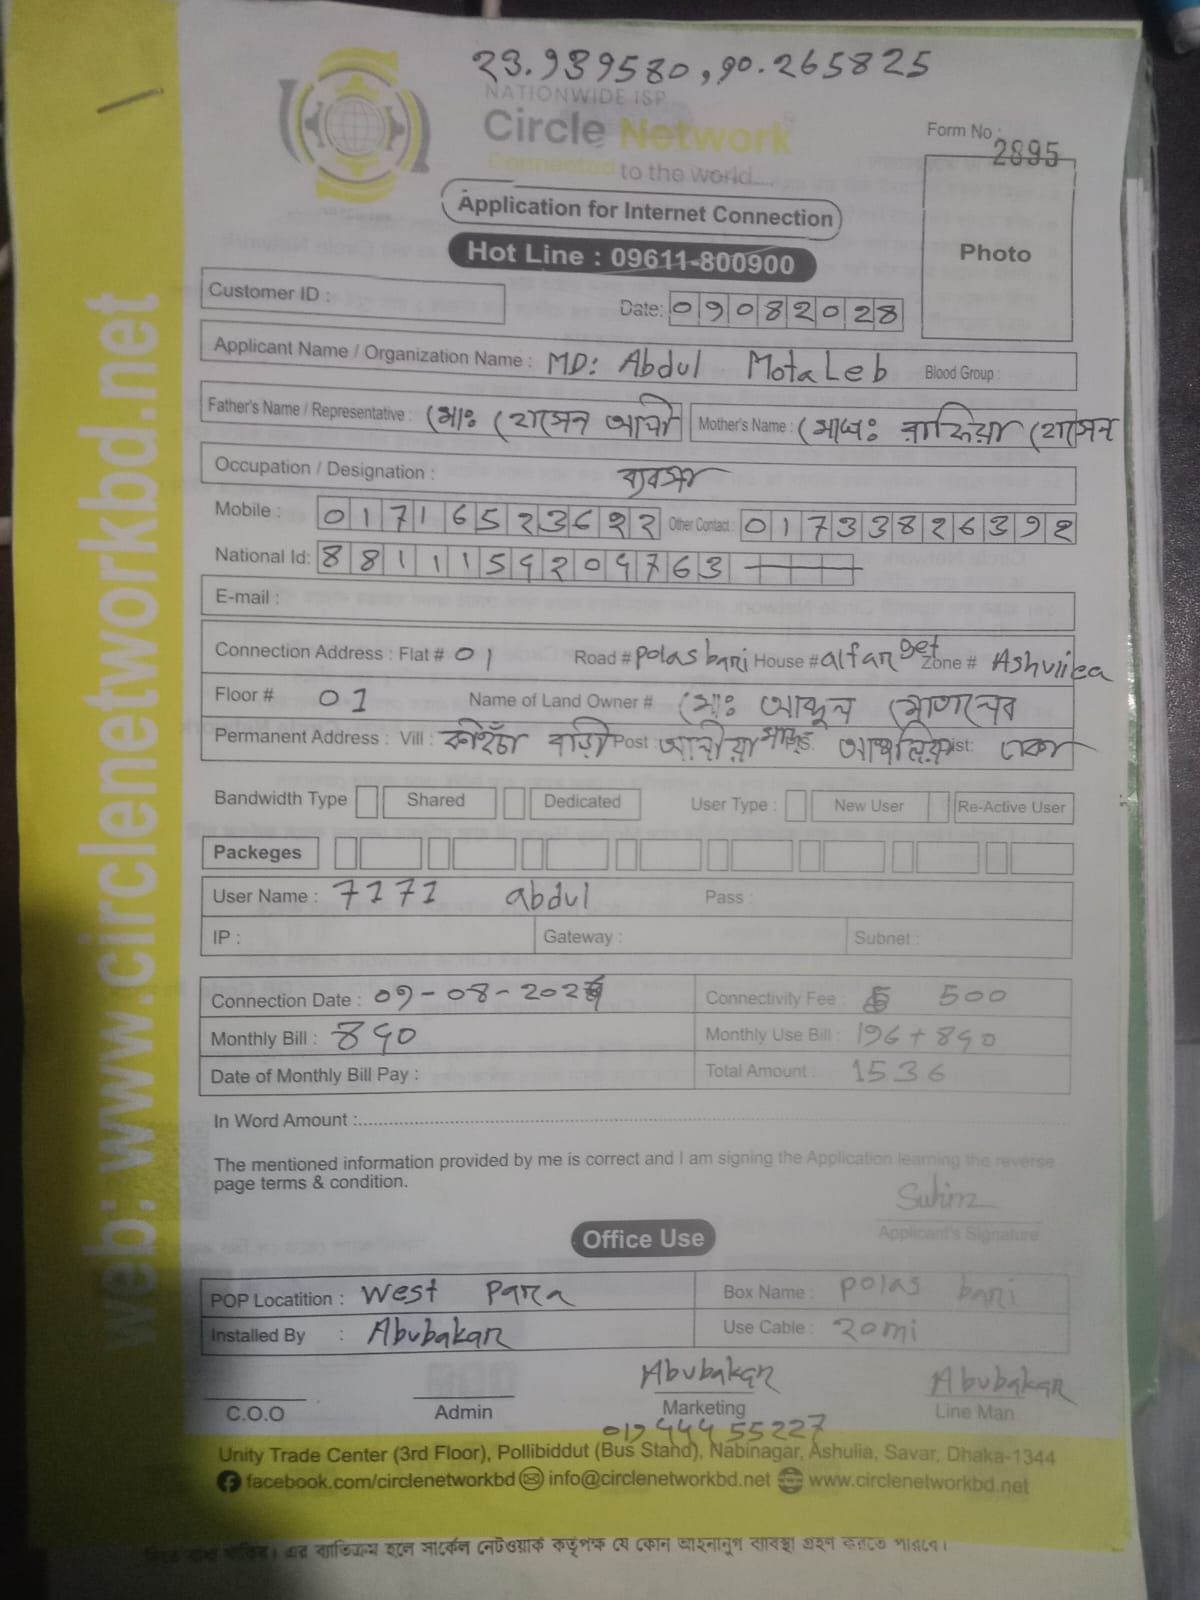 23.939580, 90.265825
NATIONWIDE ISP
Circle Network
Connected to the world....
Form No : 2895
Application for Internet Connection
Photo
Hot Line : 09611-800900
Customer ID :
Date: 09082028
Applicant Name / Organization Name : MD: Abdul MotaLeb Blood Group :
Father's Name / Representative : মোঃ হোসেন আলী Mother's Name : মোছাঃ রাফিয়া হোসেন
Occupation / Designation : ব্যবসা
Mobile : 01716523622 Other Contact : 01733826392
National Id: 88111159209763
E-mail :
Connection Address : Flat # 01 Road # polas bari House # alfan get Zone # Ashuliea
Floor # 01 Name of Land Owner # মোঃ আব্দুল মোতালেব
Permanent Address : Vill : কাইচা বাড়ী Post : P.S: আশুলিয়া Dist: ঢাকা
Bandwidth Type Shared Dedicated User Type : New User Re-Active User
Packeges
User Name : 7171 abdul Pass :
IP : Gateway : Subnet :
Connection Date : 09-08-202 Connectivity Fee : 500
Monthly Bill : 840 Monthly Use Bill : 196 + 840
Date of Monthly Bill Pay : Total Amount : 1536
In Word Amount :
The mentioned information provided by me is correct and I am signing the Application learning the reverse
page terms & condition.
Applicant's Signature
Office Use
POP Locatition : West Para Box Name : polas bari
Installed By : Abubakar Use Cable : 20mi
Abubakar Abubakar
C.O.O Admin Marketing Line Man
01744455227
Unity Trade Center (3rd Floor), Pollibiddut (Bus Stand), Nabinagar, Ashulia, Savar, Dhaka-1344
facebook.com/circlenetworkbd info@circlenetworkbd.net www.circlenetworkbd.net
web: www.circlenetworkbd.net
এর ব্যতিক্রম হলে সার্কেল নেটওয়ার্ক কর্তৃপক্ষ যে কোন আইনানুগ ব্যবস্থা গ্রহণ করতে পারবে।